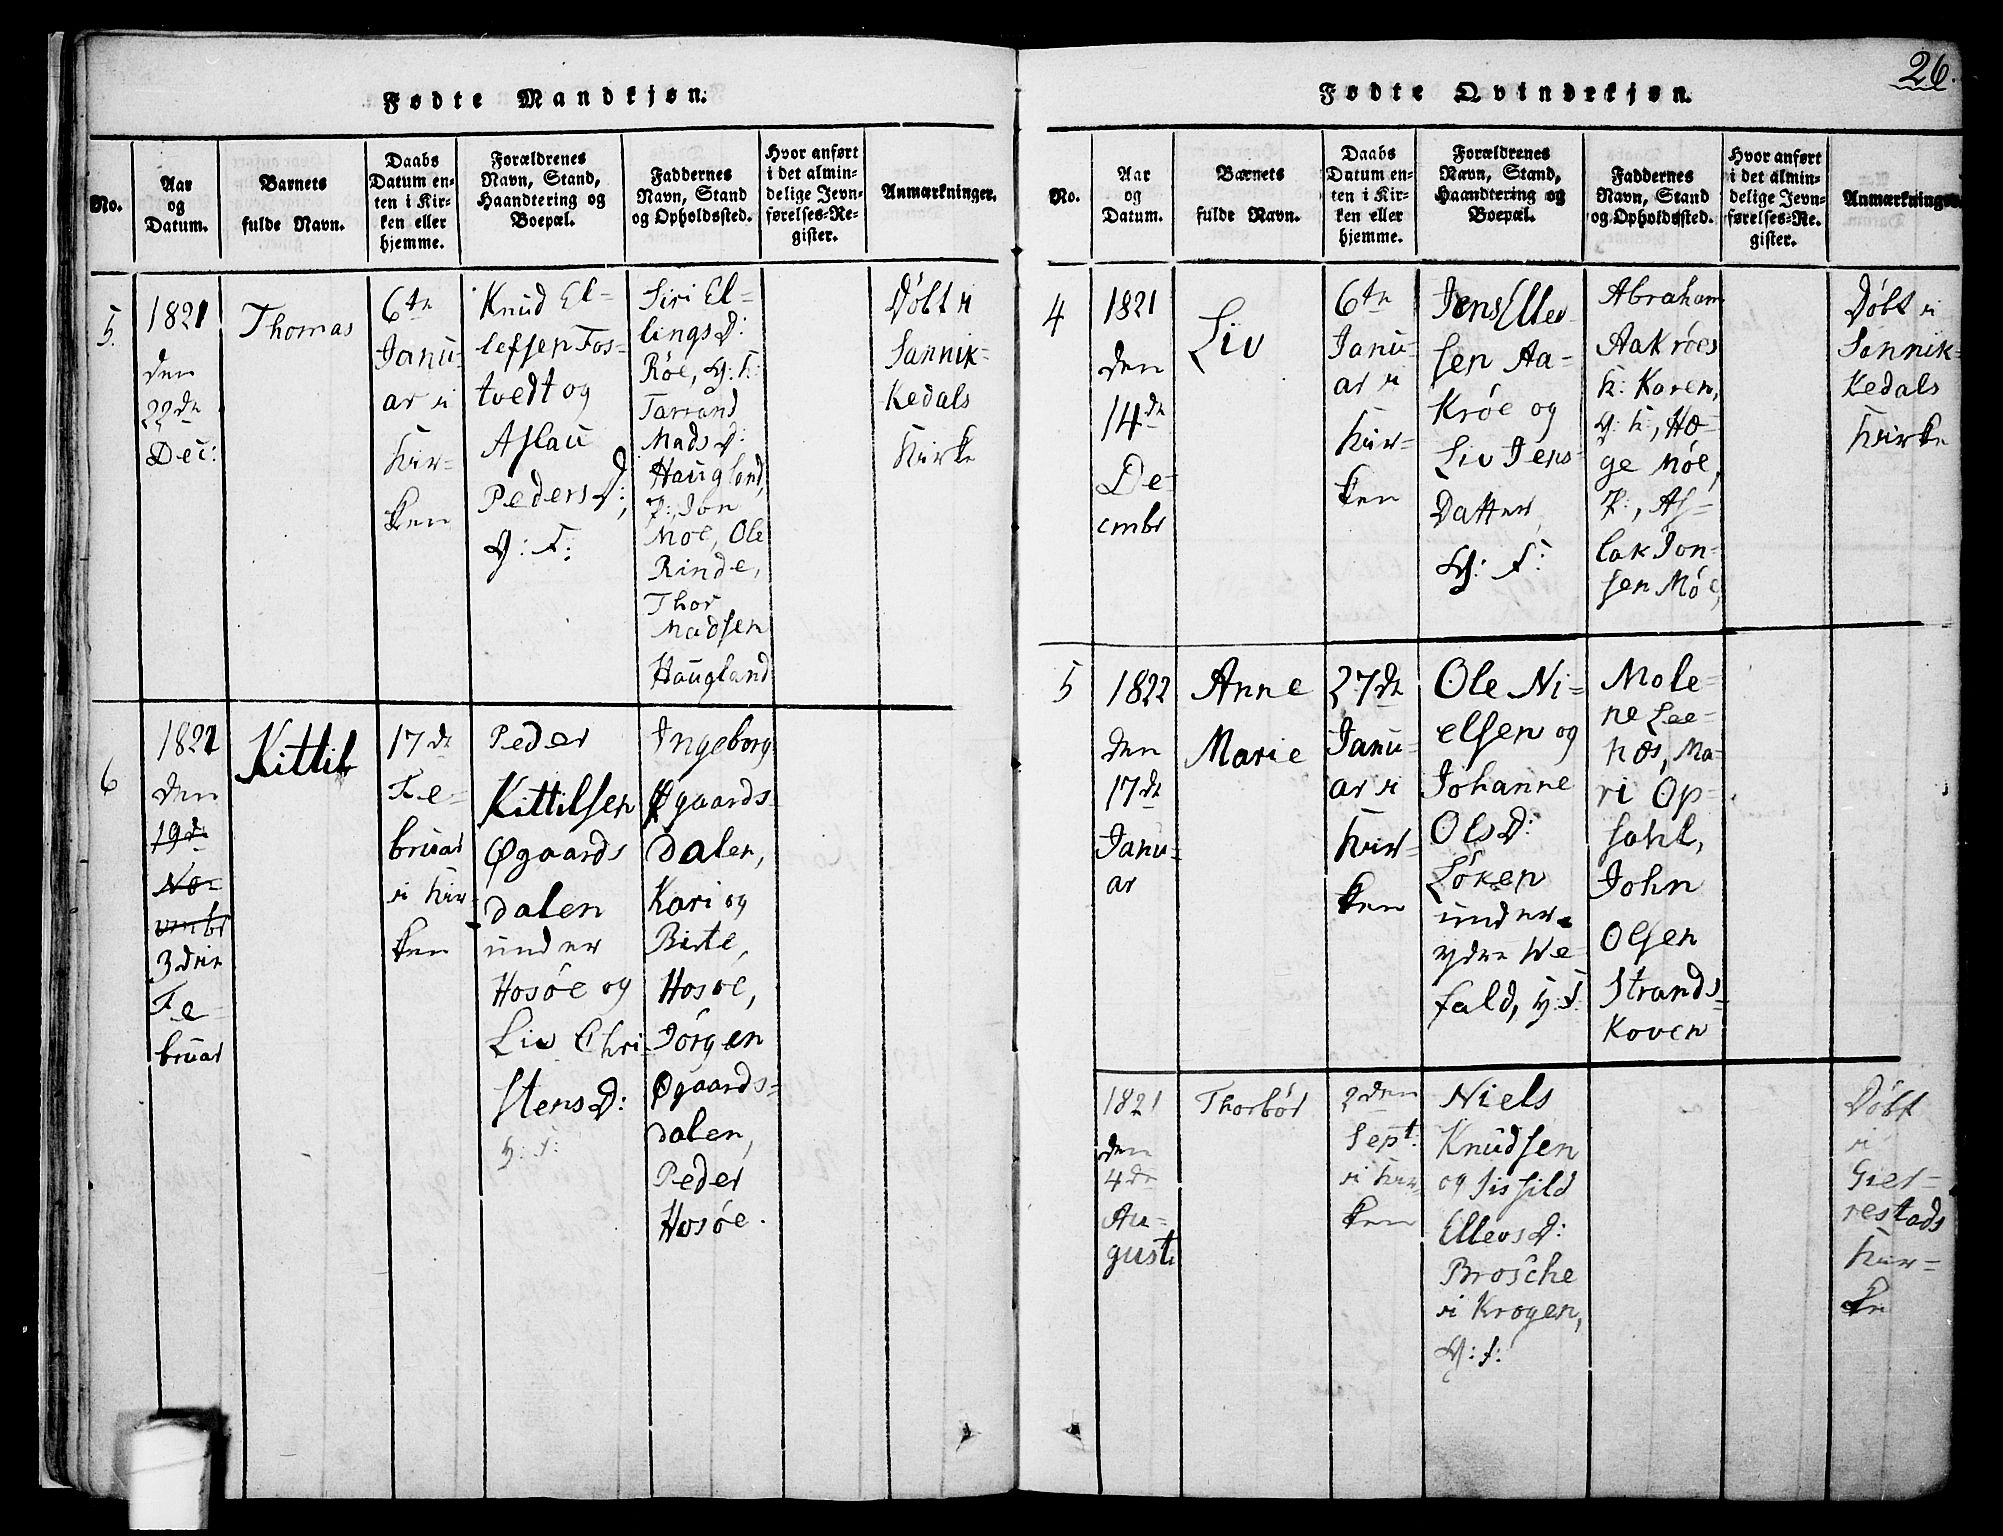 26.
Fødte Mandkjøn.
No.
Aar
og
Datum.
Barnets
fulde Navn.
Daabs
Datum en-
ten i Kir-
ken eller
hjemme.
Forældrenes
Navn, Stand,
Haandtering og
Boepæl.
Faddernes
Navn, Stand
og Opholdssted.
Hvor anført
i det almin-
delige Jevn-
førelses-Re-
gister.
Anmærkninger.
5.
1821
den
22de
Dec:
Thomas
6te
Janu-
ar i
Kir-
ken
Knud El-
lefsen Fos-
tvedt og
Aslau
Peders D:,
G: F:
Siri El-
lings D:
Røe, G: K:
Tarrand
Mads D:
Haugland,
P:, Jon
Moe, Ole
Rinde,
Thor
Madsen
Haugland
Døbt i
Sannik-
kedals
Kirke
6
1821
den
19de
No-
vmbr
3die
Fe-
bruar
Kittil
17de
Fe-
bruar
i Kir-
ken
Peder
Kittilsen
Øgaards
dalen
under
Hosøe og
Liv Chri-
stens D:
G: F:
Ingeborg
Øgaards-
dalen,
Kari og
Birte,
Hosøe,
Jørgen
Øgaards-
dalen,
Peder
Hosøe.
Fødte Qvindekjøn.
No.
Aar
og
Datum.
Barnets
fulde Navn.
Daabs
Datum en-
ten i Kir-
ken eller
hjemme.
Forældrenes
Navn, Stand,
Haandtering og
Boepæl.
Faddernes
Navn, Stand
og Opholdssted.
Hvor anført
i det almin-
delige Jevn-
førelses-Re-
gister.
Anmærkninger.
4
1821
den
14de
De-
cmbr
Liv
6te
Janu-
ar i
Kir-
ken
Jens Ellev-
sen Aa-
krøe og
Liv Jens-
Datter,
G: F:
Abraham
Aakrøes
K: Karen,
G: K:, Hæ-
ge Møe,
P:, As-
lak Jon-
sen Møe,
Døbt i
Sannik-
kedals
Kirke
5
1822
den
17de
Janu-
ar
Anne
Marie
27de
Janu-
ar i
Kir-
ken
Ole Ni-
elsen og
Johanne
Ols D:
Løken
under
ydre We-
fald, G: F:
Male-
ne Lee-
næs, Ma-
ri Op-
sahl,
John
Olsen
Strands-
koven
1821
den
4de
Au-
gusti
Thorbør
2den
Sept:
i Kir-
ken
Niels
Knudsen
og Sissild
Ellevs D:
Brosche
i Krogen,
G: F:
Døbt
i
Gier-
restads
Kir-
ke